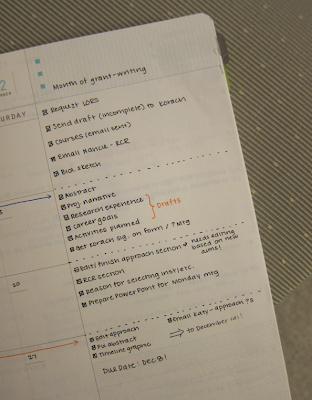 2
URDAY
Month of grant-writing
Request LORs
Send draft (incomplete) to Korach
Courses (email sent)
Email - RCR
Bio sketch
Abstract
Proj. narrative
Research experience
Career goals
Activities planned
Drafts
Get Korach sig. on form / ? mtg
20
Edit/finish approach section → needs editing based on new aims!
RCR section
Reason for selecting inst/etc.
Prepare PowerPoint for Monday mtg
27
Edit approach
Fix abstract
Timeline graphic
Email Katy - approach ?s
⇒ to December 1st!
Due Date: Dec 8!